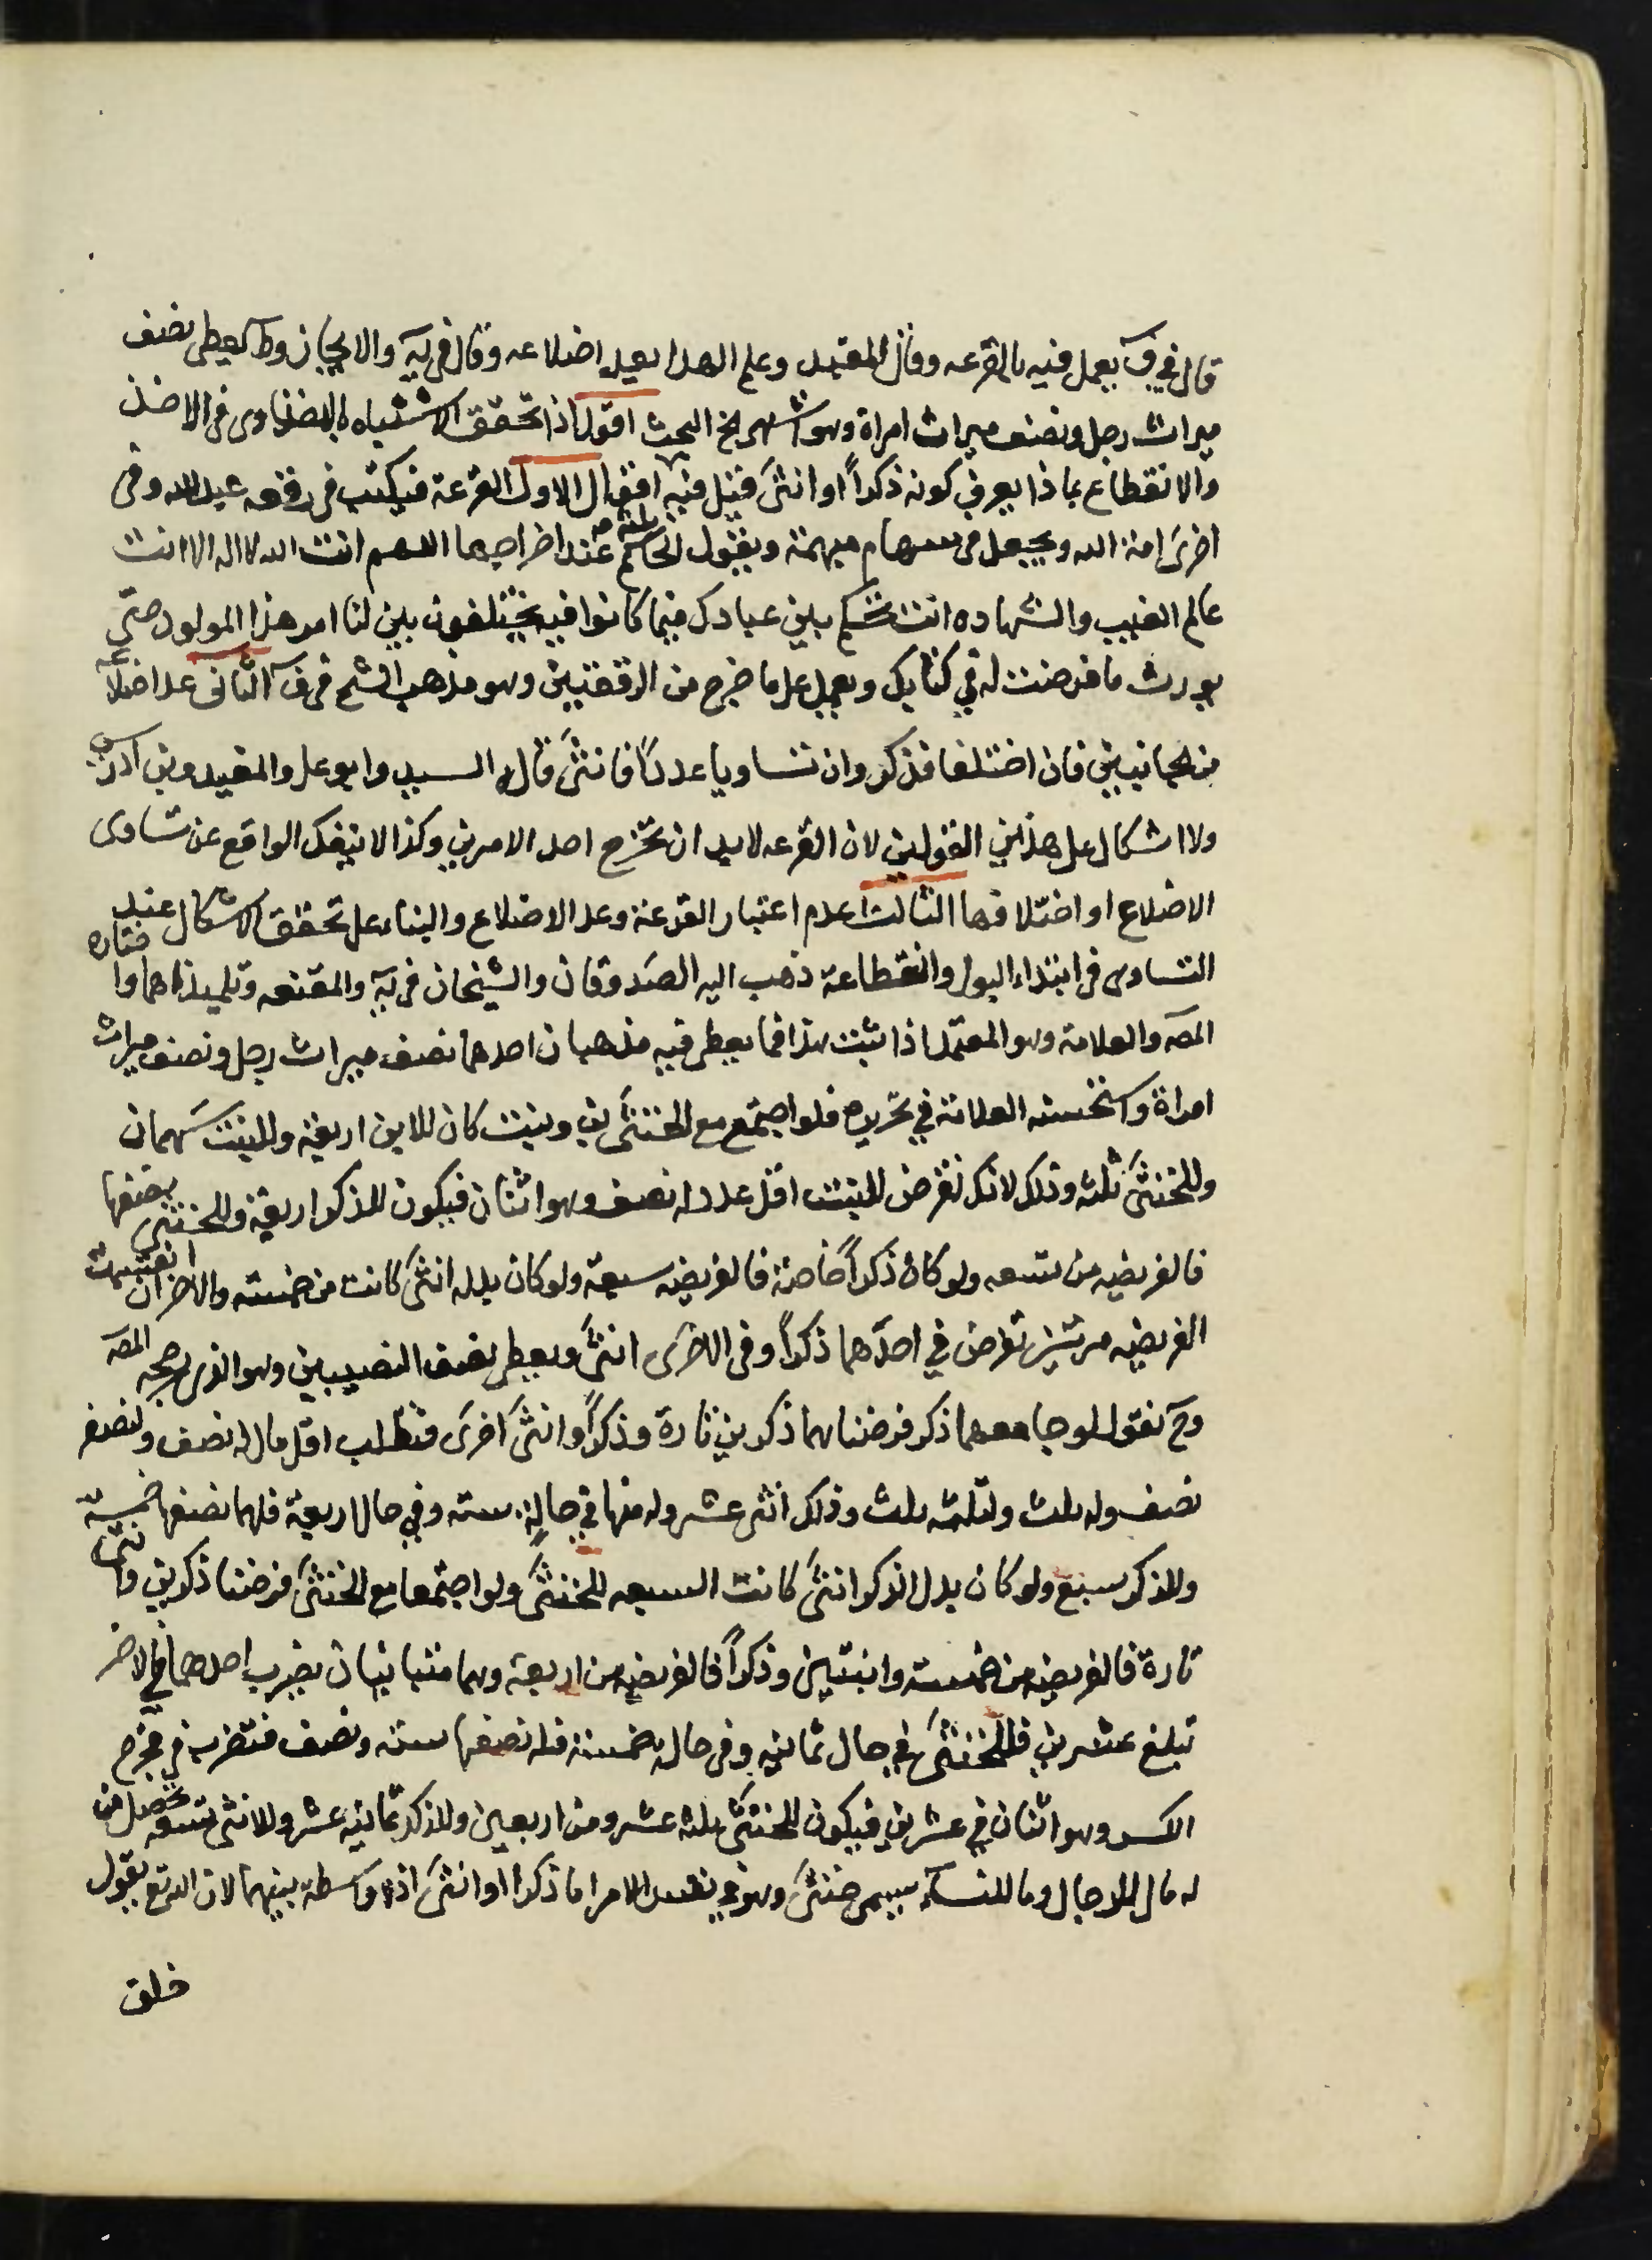 قال في ف يعمل فيه بالقرعه وقال المفيد وعلم الهدا يعد اضلاعه وقال في يه والايجاز وط يعطى نصف
ميراث رجل ونصف ميراث امراة وهو اشهر الخ البحث اقول اذا تحقق الاشتباه بالتساوى فى الاخذ
والانقطاع بما ذا يعرف كونه ذكراً او انثى قيل فيه اقوال الاول القرعة فيكتب فى رقعه عبدالله وفى
اخرى امة الله ويجعل فى سهام مبهمة ويقول الحاكم عند اخراجها اللهم انت الله لا اله الا انت
عالم الغيب والشهاده انت تحكم بين عبادك فيما كانوا فيه يختلفون بين لنا امر هذا المولود حتى
يورث ما فرضت له في كتابك ويعمل على ما خرج من الرقعتين وهو مذهب الشيخ فى ف الثانى عد اضلاعه
من الجانبين فان اختلفا فذكر وان تساويا عدداً فانثى قاله السيد وابو على والمفيد وبن ادريس
ولا اشكال على هذين القولين لان القرعه لابد ان تخرج احد الامرين وكذا لا ينفك الواقع عن تساوى
الاضلاع او اختلافها الثالث عدم اعتبار القرعة وعد الاضلاع والبناء على تحقق الاشكال عند
التساوى فى ابتداء البول وانقطاعه ذهب اليه الصدوقان والشيخان فى يه والمقنعه وتلميذاهما واختاره
المص والعلامة وهو المعتمد اذا ثبت هذا فما يعطى فيه مذهبان احدهما نصف ميراث رجل ونصف ميراث
امراة واستحسنه العلامة في تحريره فلو اجتمع مع الخنثى بن وبنت كان للابن اربعة وللبنت سهمان
وللخنثى ثلثه وذلك لانك تفرض للبنت اقل عدد له نصف وهو اثنان فيكون للذكر اربعة وللخنثى نصفها
فالفريضه من تسعه ولو كان ذكراً خاصة فالفريضه سبعة ولو كان بدله انثى كانت من خمسه والاخر ان تقسمت
الفريضه مرتين تفرض في احدهما ذكراً وفى الاخرى انثى ويعطى نصف النصيبين وهو الذى رجحه المص
وح نقول لو جامعهما ذكر فرضناهما ذكرين تارة وذكراً وانثى اخرى فنطلب اقل مال له نصف ولنصفه
نصف وله ثلث ولثلثه ثلث وذلك اثنى عشر وله منها في حالٍ سته وفي حال اربعة فلهما نصفها خمسة
وللذكر سبع ولو كان بدل الذكر انثى كانت السبعه للخنثى ولو اجتمعا مع الخنثى فرضنا ذكرين وانثى
تارة فالفريضه من خمسه وانثيين وذكراً فالفريضه من اربعة وهما متباينان نضرب احدهما في الاخر
تبلغ عشرين فللخنثى في حال ثمانيه وفى حال خمسة فله نصفها سته ونصف فتضرب في مخرج
الكسر وهو اثنان في عشرين فيكون للخنثى ثلثه عشر ومن اربعين وللذكر ثمانيه عشر وللانثى تسعه تحصل من
له مال للرجال وما للنساء يسمى خنثى وهو في نفس الامر اما ذكر او انثى اذ لا واسطة بينهما لان الله تع يقول
خلق